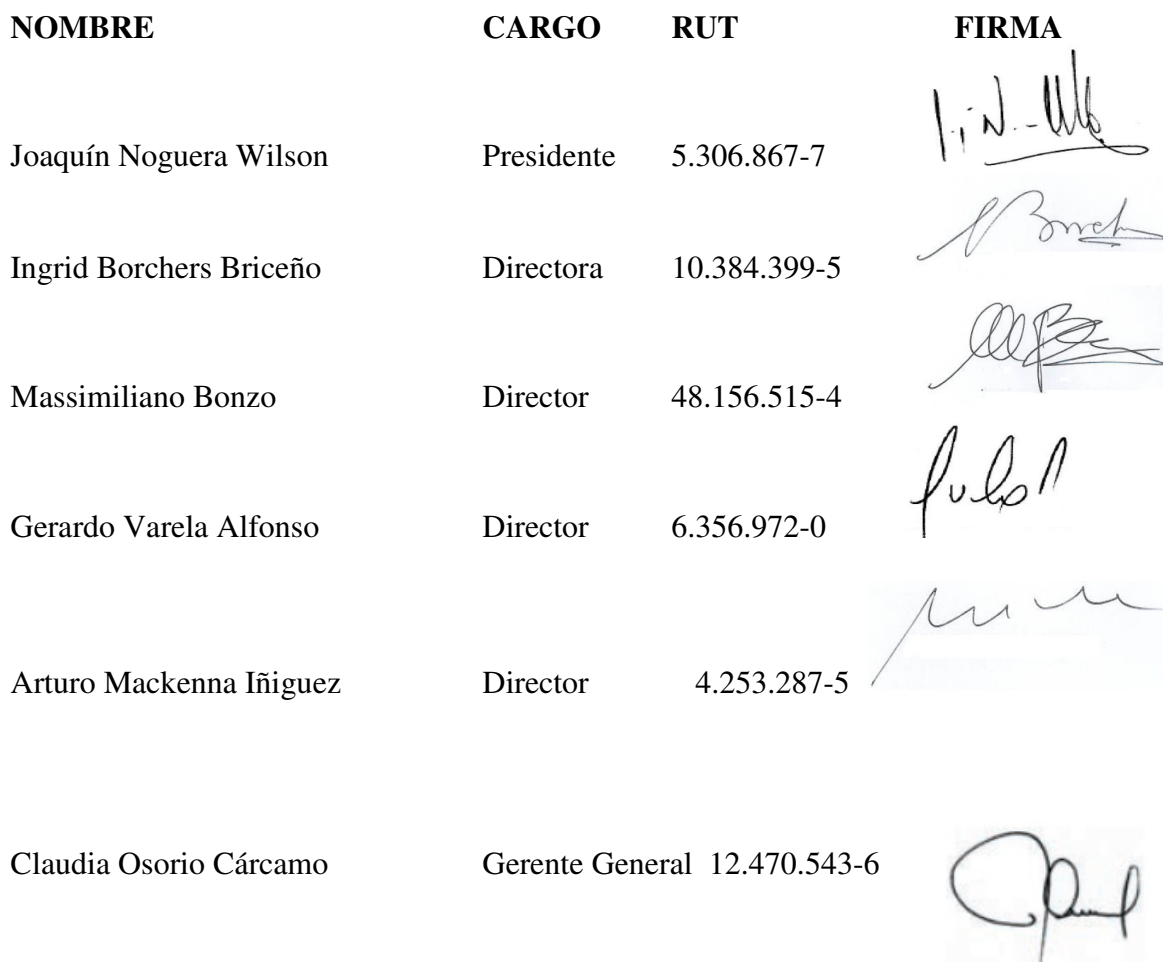 NOMBRE CARGO RUT FIRMA
Joaquín Noguera Wilson Presidente 5.306.867-7
Ingrid Borchers Briceño Directora 10.384.399-5
Massimiliano Bonzo Director 48.156.515-4
Gerardo Varela Alfonso Director 6.356.972-0
Arturo Mackenna Iñiguez Director 4.253.287-5
Claudia Osorio Cárcamo Gerente General 12.470.543-6